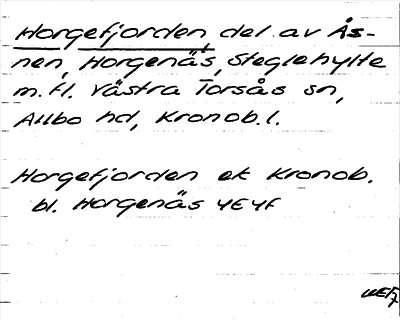 Horgefjorden, del av Ås-
nen, Horgenäs, Steglehylte
m.fl. Västra Torsås sn,
Allbo hd, Kronob.l.
Horgefjorden ek Kronob.
bl. Horgenäs 4E4f